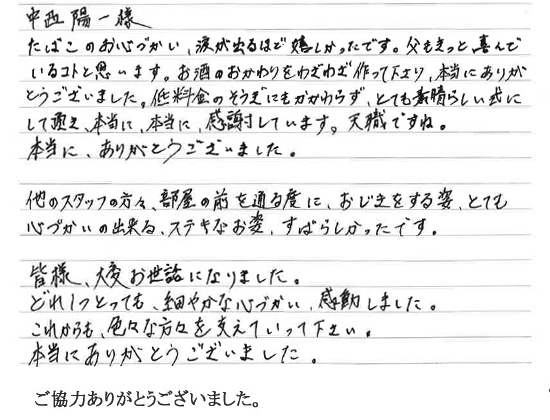 中西 陽一様
たばこのお心づかい、涙が出るほど嬉しかったです。父もきっと、喜んで
いるコトと思います。お酒のおかわりをわざわざ作って下さり、本当にありが
とうございました。低料金のそうぎにもかかわらず、とても素晴らしい式に
して頂き、本当に、本当に、感謝しています。天職ですね。
本当に、ありがとうございました。
他のスタッフの方々、部屋の前を通る度に、おじぎをする姿、とても
心づかいの出来る、ステキなお姿、すばらしかったです。
皆様、大変お世話になりました。
どれ1つとっても、細やかな心づかい、感動しました。
これからも、色々な方々を支えていって下さい。
本当にありがとうございました。
ご協力ありがとうございました。